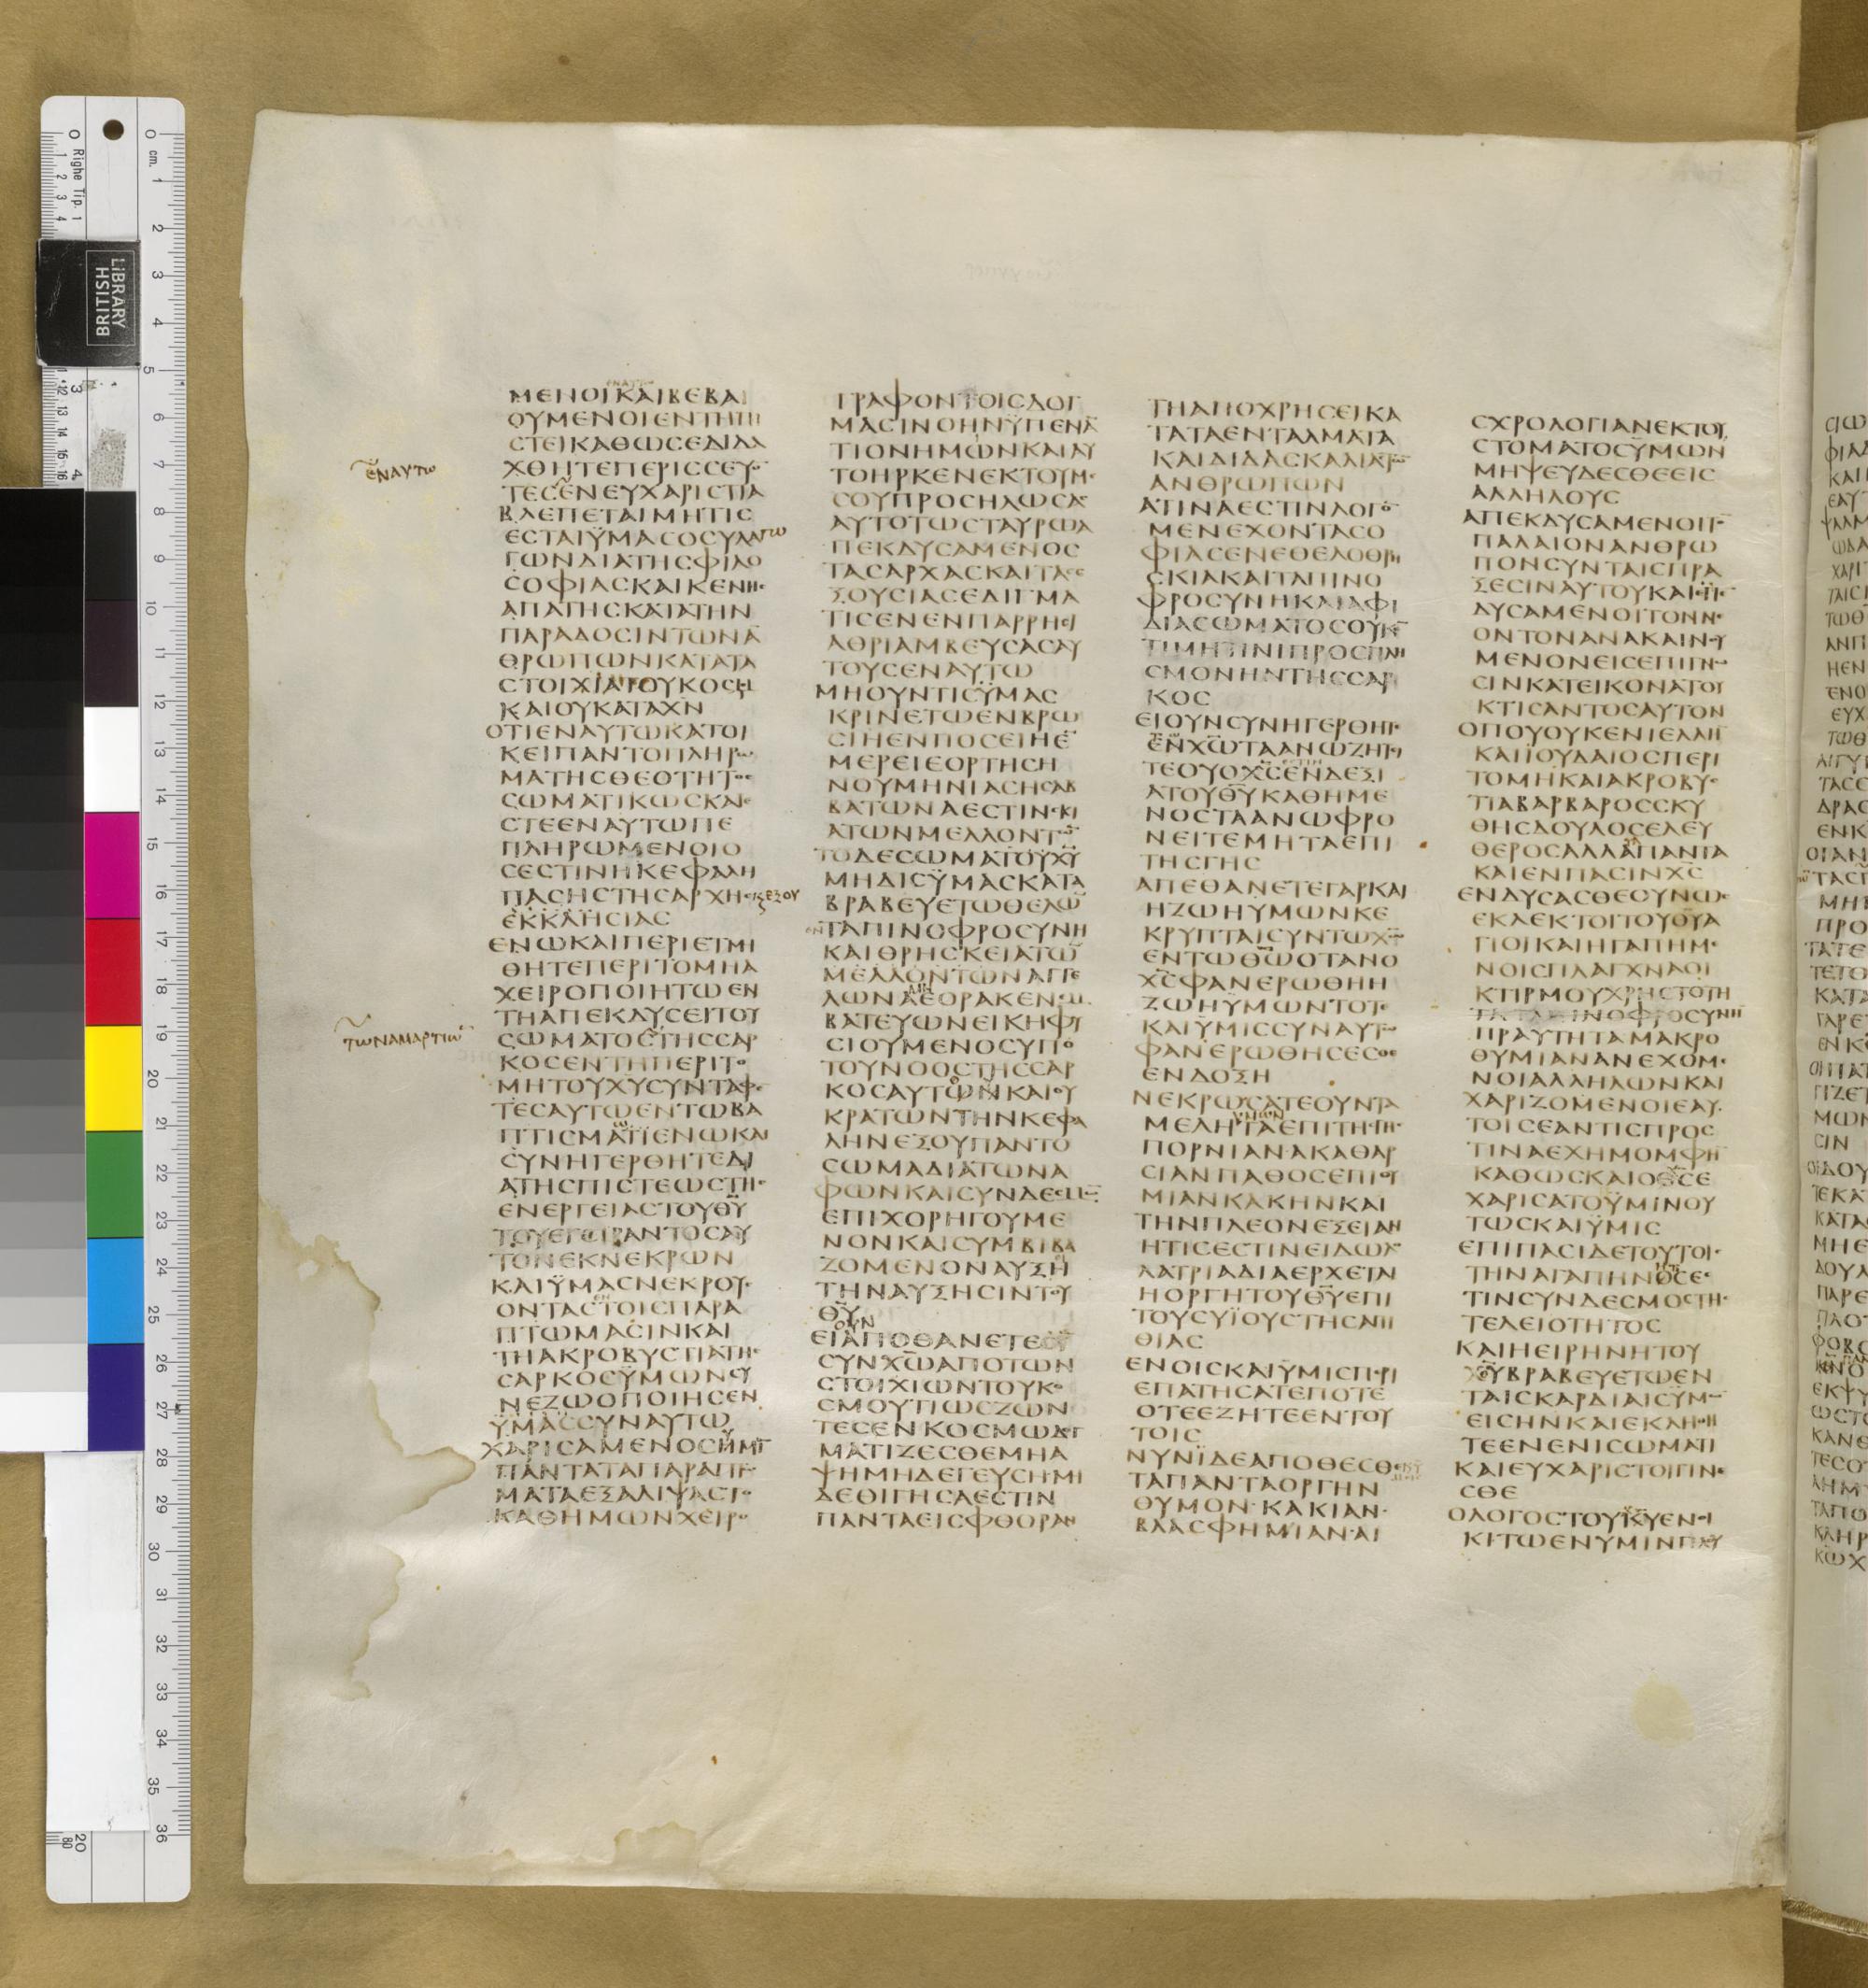 ΜΕΝΟΙΚΑΙΒΕΒΑΙ
ΟΥΜΕΝΟΙΕΝΤΗΠΙ
ΣΤΕΙΚΑΘΩΣΕΔΙΔΑ
ΧΘΗΤΕΠΕΡΙΣΣΕΥΟ
ΤΕΣΕΝΕΥΧΑΡΙΣΤΙΑ
ΒΛΕΠΕΤΑΙΜΗΤΙΣ
ΕΣΤΑΙΫΜΑΣΟΣΥΛΑ
ΓΩΝΔΙΑΤΗΣΦΙΛΟ
ΣΟΦΙΑΣΚΑΙΚΕΝΗΣ
ΑΠΑΤΗΣΚΑΤΑΤΗΝ
ΠΑΡΑΔΟΣΙΝΤΩΝΑ̅
ΘΡΩΠΩΝΚΑΤΑΤΑ
ΣΤΟΙΧΙΑΤΟΥΚΟΣΜ
ΚΑΙΟΥΚΑΤΑΧΝ
ΟΤΙΕΝΑΥΤΩΚΑΤΟΙ
ΚΕΙΠΑΝΤΟΠΛΗΡΩ
ΜΑΤΗΣΘΕΟΤΗΤΟΣ
ΣΩΜΑΤΙΚΩΣΚΑΙΕ
ΣΤΕΕΝΑΥΤΩΠΕ
ΠΛΗΡΩΜΕΝΟΙΟ
ΣΕΣΤΙΝΗΚΕΦΑΛΗ
ΠΑΣΗΣΤΗΣΑΡΧΗΣ
ΕΚΚΛΗΣΙΑΣ
ΕΝΩΚΑΙΠΕΡΙΕΤΜΗ
ΘΗΤΕΠΕΡΙΤΟΜΗΑ
ΧΕΙΡΟΠΟΙΗΤΩΕΝ
ΤΗΑΠΕΚΔΥΣΕΙΤΟΥ
ΣΩΜΑΤΟΣΤΗΣΣΑΡ
ΚΟΣΕΝΤΗΠΕΡΙΤΟ
ΜΗΤΟΥΧΥΣΥΝΤΑΦΕ
ΤΕΣΑΥΤΩΕΝΤΩΒΑ
ΠΤΙΣΜΑΤΙΕΝΩΚΑΙ
ΣΥΝΗΓΕΡΘΗΤΕΔΙ
ΑΤΗΣΠΙΣΤΕΩΣΤΗΣ
ΕΝΕΡΓΕΙΑΣΤΟΥΘΥ
ΤΟΥΕΓΕΙΡΑΝΤΟΣΑΥ
ΤΟΝΕΚΝΕΚΡΩΝ
ΚΑΙΫΜΑΣΝΕΚΡΟΥΣ
ΟΝΤΑΣΤΟΙΣΠΑΡΑ
ΠΤΩΜΑΣΙΝΚΑΙ
ΤΗΑΚΡΟΒΥΣΤΙΑΤΗΣ
ΣΑΡΚΟΣΫΜΩΝΣΥ
ΝΕΖΩΟΠΟΙΗΣΕΝ
ΫΜΑΣΣΥΝΑΥΤΩ
ΧΑΡΙΣΑΜΕΝΟΣΗΜΙ̅
ΠΑΝΤΑΤΑΠΑΡΑΠΤΩ
ΜΑΤΑΕΞΑΛΙΨΑΣΤΟ
ΚΑΘΗΜΩΝΧΕΙΡΟ
ΕΝΑΥΤΗ
ΤΩΝΑΜΑΡΤΙΩ̅
ΓΡΑΦΟΝΤΟΙΣΔΟΓ
ΜΑΣΙΝΟΗΝΫΠΕΝΑ̅
ΤΙΟΝΗΜΩΝΚΑΙΑΥ
ΤΟΗΡΚΕΝΕΚΤΟΥΜΕ
ΣΟΥΠΡΟΣΗΛΩΣΑΣ
ΑΥΤΟΤΩΣΤΑΥΡΩΑ
ΠΕΚΔΥΣΑΜΕΝΟΣ
ΤΑΣΑΡΧΑΣΚΑΙΤΑΣΕ
ΞΟΥΣΙΑΣΕΔΙΓΜΑ
ΤΙΣΕΝΕΝΠΑΡΡΗΣΙ
ΑΘΡΙΑΜΒΕΥΣΑΣΑΥ
ΤΟΥΣΕΝΑΥΤΩ
ΜΗΟΥΝΤΙΣΫΜΑΣ
ΚΡΙΝΕΤΩΕΝΒΡΩ
ΣΙΗΕΝΠΟΣΕΙΗΕ̅
ΜΕΡΕΙΕΟΡΤΗΣΗ
ΝΟΥΜΗΝΙΑΣΗΣΑΒ
ΒΑΤΩΝΑΕΣΤΙΝΣΚΙ
ΑΤΩΝΜΕΛΛΟΝΤΩ̅
ΤΟΔΕΣΩΜΑΤΟΥΧΥ
ΜΗΔΙΣΫΜΑΣΚΑΤΑ
ΒΡΑΒΕΥΕΤΩΘΕΛΩ̅
ΤΑΠΙΝΟΦΡΟΣΥΝΗ
ΚΑΙΘΡΗΣΚΕΙΑΤΩ̅
ΜΕΛΛΟΝΤΩΝΑΓΓΕ
ΛΩΝΑΕΟΡΑΚΕΝΕΜ
ΒΑΤΕΥΩΝΕΙΚΗΦΥ
ΣΙΟΥΜΕΝΟΣΥΠΟ
ΤΟΥΝΟΟΣΤΗΣΣΑΡ
ΚΟΣΑΥΤΩΝΚΑΙΟΥ
ΚΡΑΤΩΝΤΗΝΚΕΦΑ
ΛΗΝΕΞΟΥΠΑΝΤΟ
ΣΩΜΑΔΙΑΤΩΝΑ
ΦΩΝΚΑΙΣΥΝΔΕΣΜΩ̅
ΕΠΙΧΟΡΗΓΟΥΜΕ
ΝΟΝΚΑΙΣΥΜΒΙΒΑ
ΖΟΜΕΝΟΝΑΥΞΗ
ΤΗΝΑΥΞΗΣΙΝΤΟΥ
ΘΥ
ΕΙΑΠΟΘΑΝΕΤΕ
ΣΥΝΧΩΑΠΟΤΩΝ
ΣΤΟΙΧΙΩΝΤΟΥΚΟ
ΣΜΟΥΤΙΩΣΖΩΝ
ΤΕΣΕΝΚΟΣΜΩΔΟΓ
ΜΑΤΙΖΕΣΘΕΜΗΑ
ΨΗΜΗΔΕΓΕΥΣΗΜΗ
ΔΕΘΙΓΗΣΑΕΣΤΙΝ
ΠΑΝΤΑΕΙΣΦΘΟΡΑΝ
ΤΗΑΠΟΧΡΗΣΕΙΚΑ
ΤΑΤΑΕΝΤΑΛΜΑΤΑ
ΚΑΙΔΙΔΑΣΚΑΛΙΑΣΤΩ̅
ΑΝΘΡΩΠΩΝ
ΑΤΙΝΑΕΣΤΙΝΛΟΓΟ̅
ΜΕΝΕΧΟΝΤΑΣΟ
ΦΙΑΣΕΝΕΘΕΛΟΘΡΗ
ΣΚΙΑΚΑΙΤΑΠΙΝΟ
ΦΡΟΣΥΝΗΚΑΙΑΦΙ
ΔΙΑΣΩΜΑΤΟΣΟΥΚΕ̅
ΤΙΜΗΤΙΝΙΠΡΟΣΠΛΗ
ΣΜΟΝΗΝΤΗΣΣΑΡ
ΚΟΣ
ΕΙΟΥΝΣΥΝΗΓΕΡΘΗΤΕ
ΕΝΧΩΤΑΑΝΩΖΗΤΕΙ
ΤΕΟΥΟΧΣΕΝΔΕΞΙ
ΑΤΟΥΘΥΚΑΘΗΜΕ
ΝΟΣΤΑΑΝΩΦΡΟ
ΝΕΙΤΕΜΗΤΑΕΠΙ
ΤΗΣΓΗΣ
ΑΠΕΘΑΝΕΤΕΓΑΡΚΑΙ
ΗΖΩΗΥΜΩΝΚΕ
ΚΡΥΠΤΑΙΣΥΝΤΩΧΩ
ΕΝΤΩΘΩΟΤΑΝΟ
ΧΣΦΑΝΕΡΩΘΗΗ
ΖΩΗΫΜΩΝΤΟΤΕ
ΚΑΙΫΜΙΣΣΥΝΑΥΤΩ
ΦΑΝΕΡΩΘΗΣΕΣΘΕ
ΕΝΔΟΞΗ
ΝΕΚΡΩΣΑΤΕΟΥΝΤΑ
ΜΕΛΗΤΑΕΠΙΤΗΣΓΗΣ
ΠΟΡΝΙΑΝΑΚΑΘΑΡ
ΣΙΑΝΠΑΘΟΣΕΠΙΘΥ
ΜΙΑΝΚΑΚΗΝΚΑΙ
ΤΗΝΠΛΕΟΝΕΞΕΙΑΝ
ΗΤΙΣΕΣΤΙΝΕΙΔΩΛΟ
ΛΑΤΡΙΑΔΙΑΕΡΧΕΤΑΙ
ΗΟΡΓΗΤΟΥΘΥΕΠΙ
ΤΟΥΣΥΪΟΥΣΤΗΣΑΠΙ
ΘΙΑΣ
ΕΝΟΙΣΚΑΙΫΜΙΣΠΕΡΙ
ΕΠΑΤΗΣΑΤΕΠΟΤΕ
ΟΤΕΕΖΗΤΕΕΝΤΟΥ
ΤΟΙΣ
ΝΥΝΪΔΕΑΠΟΘΕΣΘΕ
ΤΑΠΑΝΤΑΟΡΓΗΝ
ΘΥΜΟΝ·ΚΑΚΙΑΝ·
ΒΛΑΣΦΗΜΙΑΝ·ΑΙ
ΣΧΡΟΛΟΓΙΑΝΕΚΤΟΥ
ΣΤΟΜΑΤΟΣΫΜΩΝ
ΜΗΨΕΥΔΕΣΘΕΕΙΣ
ΑΛΛΗΛΟΥΣ
ΑΠΕΚΔΥΣΑΜΕΝΟΙΤΟ̅
ΠΑΛΑΙΟΝΑΝΘΡΩ
ΠΟΝΣΥΝΤΑΙΣΠΡΑ
ΞΕΣΙΝΑΥΤΟΥΚΑΙΕΠΕ̅
ΔΥΣΑΜΕΝΟΙΤΟΝΝΕ
ΟΝΤΟΝΑΝΑΚΑΙΝΟΥ
ΜΕΝΟΝΕΙΣΕΠΙΓΝΩ
ΣΙΝΚΑΤΕΙΚΟΝΑΤΟΥ
ΚΤΙΣΑΝΤΟΣΑΥΤΟΝ
ΟΠΟΥΟΥΚΕΝΙΕΛΛΗ̅
ΚΑΙΪΟΥΔΑΙΟΣΠΕΡΙ
ΤΟΜΗΚΑΙΑΚΡΟΒΥΣ
ΤΙΑΒΑΡΒΑΡΟΣΣΚΥ
ΘΗΣΔΟΥΛΟΣΕΛΕΥ
ΘΕΡΟΣΑΛΛΑΠΑΝΤΑ
ΚΑΙΕΝΠΑΣΙΝΧΣ
ΕΝΔΥΣΑΣΘΕΟΥΝΩΣ
ΕΚΛΕΚΤΟΙΤΟΥΘΥΑ
ΓΙΟΙΚΑΙΗΓΑΠΗΜΕ
ΝΟΙΣΠΛΑΓΧΝΑΟΙ
ΚΤΙΡΜΟΥΧΡΗΣΤΟΤΗ
ΤΑΤΑΠΙΝΟΦΡΟΣΥΝΗ
ΠΡΑΥΤΗΤΑΜΑΚΡΟ
ΘΥΜΙΑΝΑΝΕΧΟΜΕ
ΝΟΙΑΛΛΗΛΩΝΚΑΙ
ΧΑΡΙΖΟΜΕΝΟΙΕΑΥ
ΤΟΙΣΕΑΝΤΙΣΠΡΟΣ
ΤΙΝΑΕΧΗΜΟΜΦΗ
ΚΑΘΩΣΚΑΙΟΘΣΕ
ΧΑΡΙΣΑΤΟΫΜΙΝΟΥ
ΤΩΣΚΑΙΫΜΙΣ
ΕΠΙΠΑΣΙΔΕΤΟΥΤΟΙΣ
ΤΗΝΑΓΑΠΗΝΟΣΕΣ
ΤΙΝΣΥΝΔΕΣΜΟΣΤΗΣ
ΤΕΛΕΙΟΤΗΤΟΣ
ΚΑΙΗΕΙΡΗΝΗΤΟΥ
ΧΥΒΡΑΒΕΥΕΤΩΕΝ
ΤΑΙΣΚΑΡΔΙΑΙΣΫΜΩ̅
ΕΙΣΗΝΚΑΙΕΚΛΗΘΗ
ΤΕΕΝΕΝΙΣΩΜΑΤΙ
ΚΑΙΕΥΧΑΡΙΣΤΟΙΓΙΝΕ
ΣΘΕ
ΟΛΟΓΟΣΤΟΥΚΥΕΝΟΙ
ΚΙΤΩΕΝΥΜΙΝΠΛΟΥ
BRITISH
LIBRARY